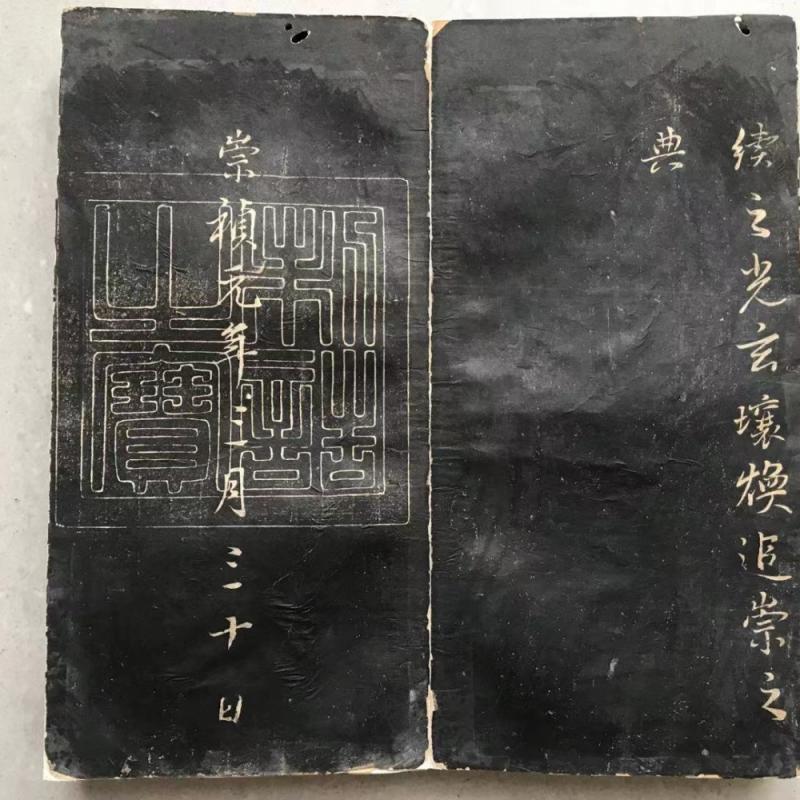 續之光玄壤煥追崇之
典
崇禎元年三月三十日
制誥
之寶